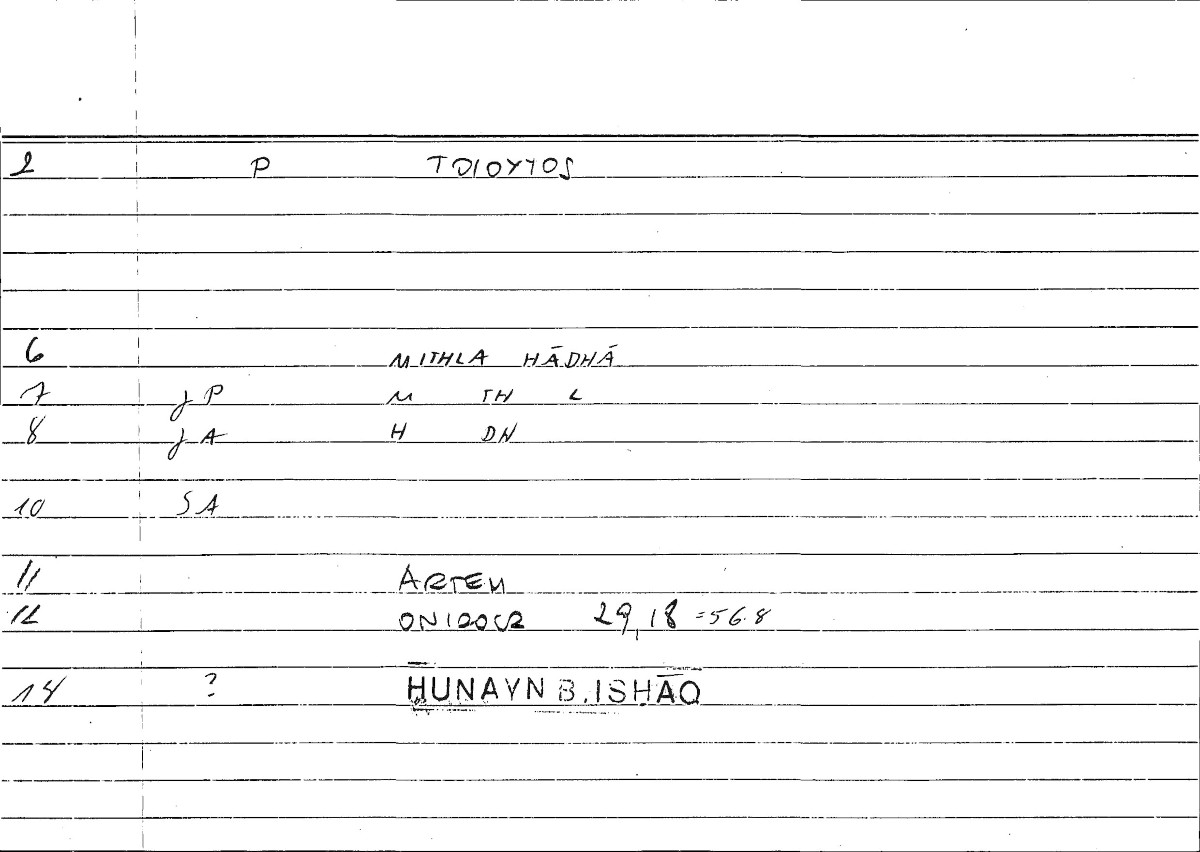 2 P ΤΟΙΟΥΤΟΣ
6 MITHLA HĀDHĀ
7 J P M TH L
8 J A H DH
10 S A
11 ARTEM
12 ONIROCR 29,18 =56.8
14 ? ḤUNAYN B. ISḤĀQ